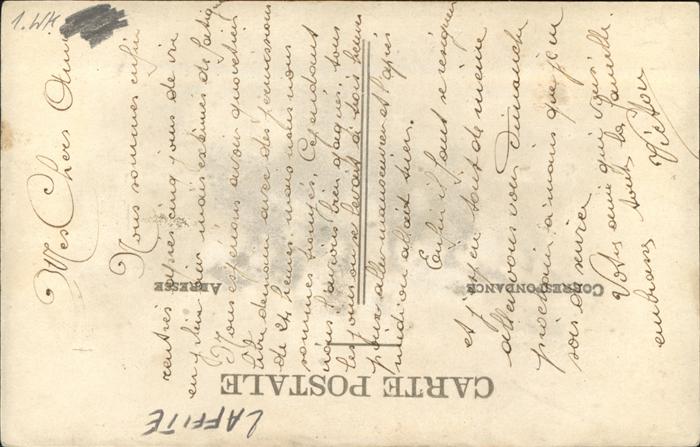 Mes Chers Amis
Nous sommes enfin
rentrés après cinq jours de vie
en plein air mais exténués de fatigue
Nous espérions avoir quartier
libre demain avec des permissions
de 24 heures mais nous nous
sommes trompés. Cependant
nous l'avons bien gagnés, tous
les jours on se levait à trois heures
pour aller manoeuvrer et l'après
midi on allait bien.
Enfin il faut se résigner
et j'espère tout de même
aller vous voir Dimanche
prochain à moins que je ne
sois de service
Votre ami qui vous
embrasse toute la famille.
Victor
CARTE POSTALE
CORRESPONDANCE
ADRESSE
LAFFITE